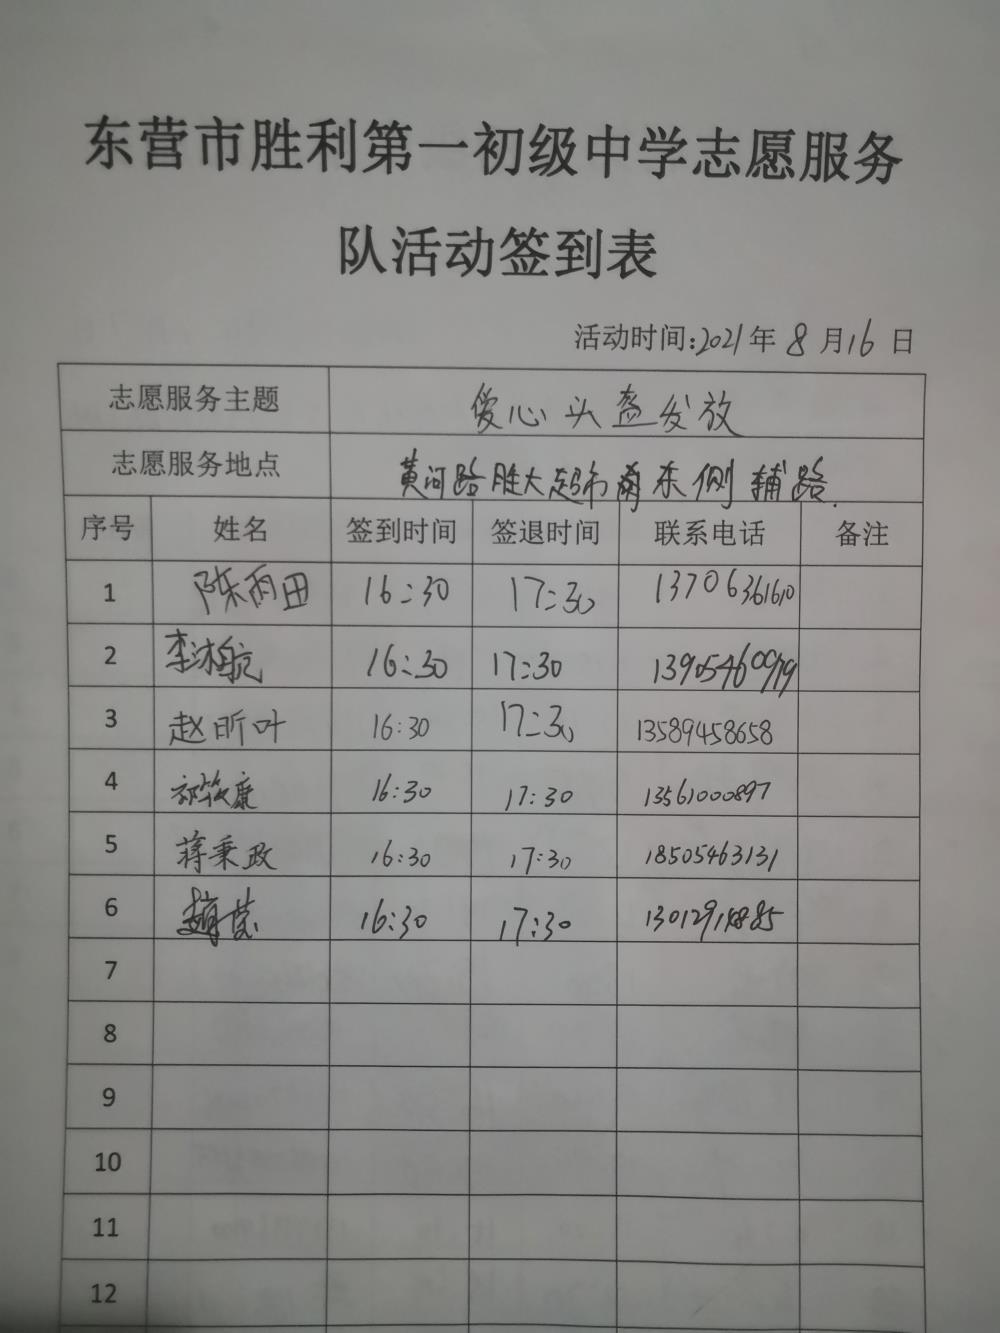 东营市胜利第一初级中学志愿服务
队活动签到表
活动时间:2021年 8 月16 日
志愿服务主题 爱心头盔发放
志愿服务地点 黄河路胜大超市南东侧辅路.
序号 姓名 签到时间 签退时间 联系电话 备注
1 陈雨田 16:30 17:30 13706361610
2 李沐航 16:30 17:30
3 赵昕叶 16:30 17:30 13589458658
4 16:30 17:30 13561000897
5 蒋秉政 16:30 17:30 18505463131
6 16:30 17:30
7
8
9
10
11
12